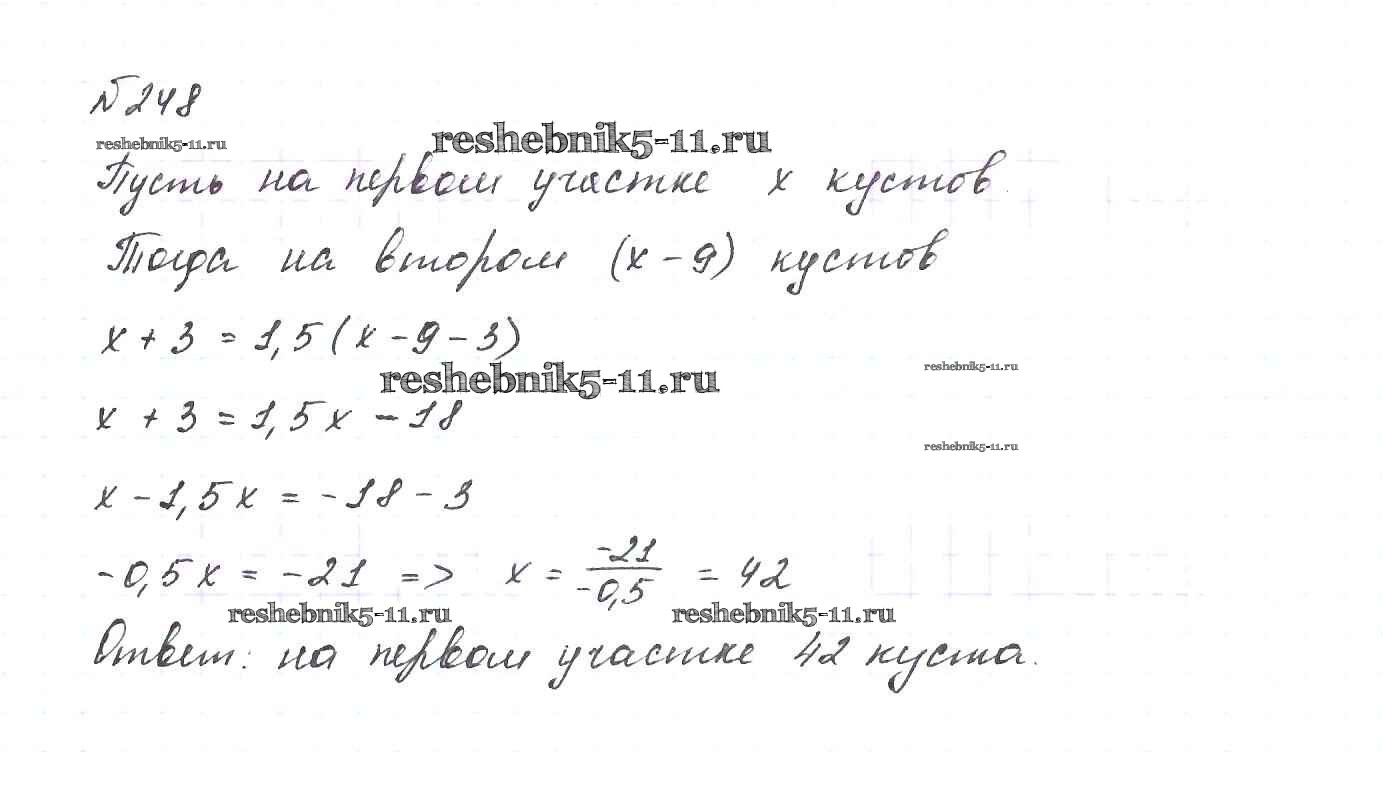 №248
reshebnik5-11.ru
reshebnik5-11.ru
Пусть на первом участке x кустов.
Тогда на втором (x - 9) кустов
x + 3 = 1,5(x - 9 - 3)
reshebnik5-11.ru
reshebnik5-11.ru
x + 3 = 1,5x - 18
reshebnik5-11.ru
x - 1,5x = -18 - 3
-0,5x = -21 => x = -21/-0,5 = 42
reshebnik5-11.ru
reshebnik5-11.ru
Ответ: на первом участке 42 куста.